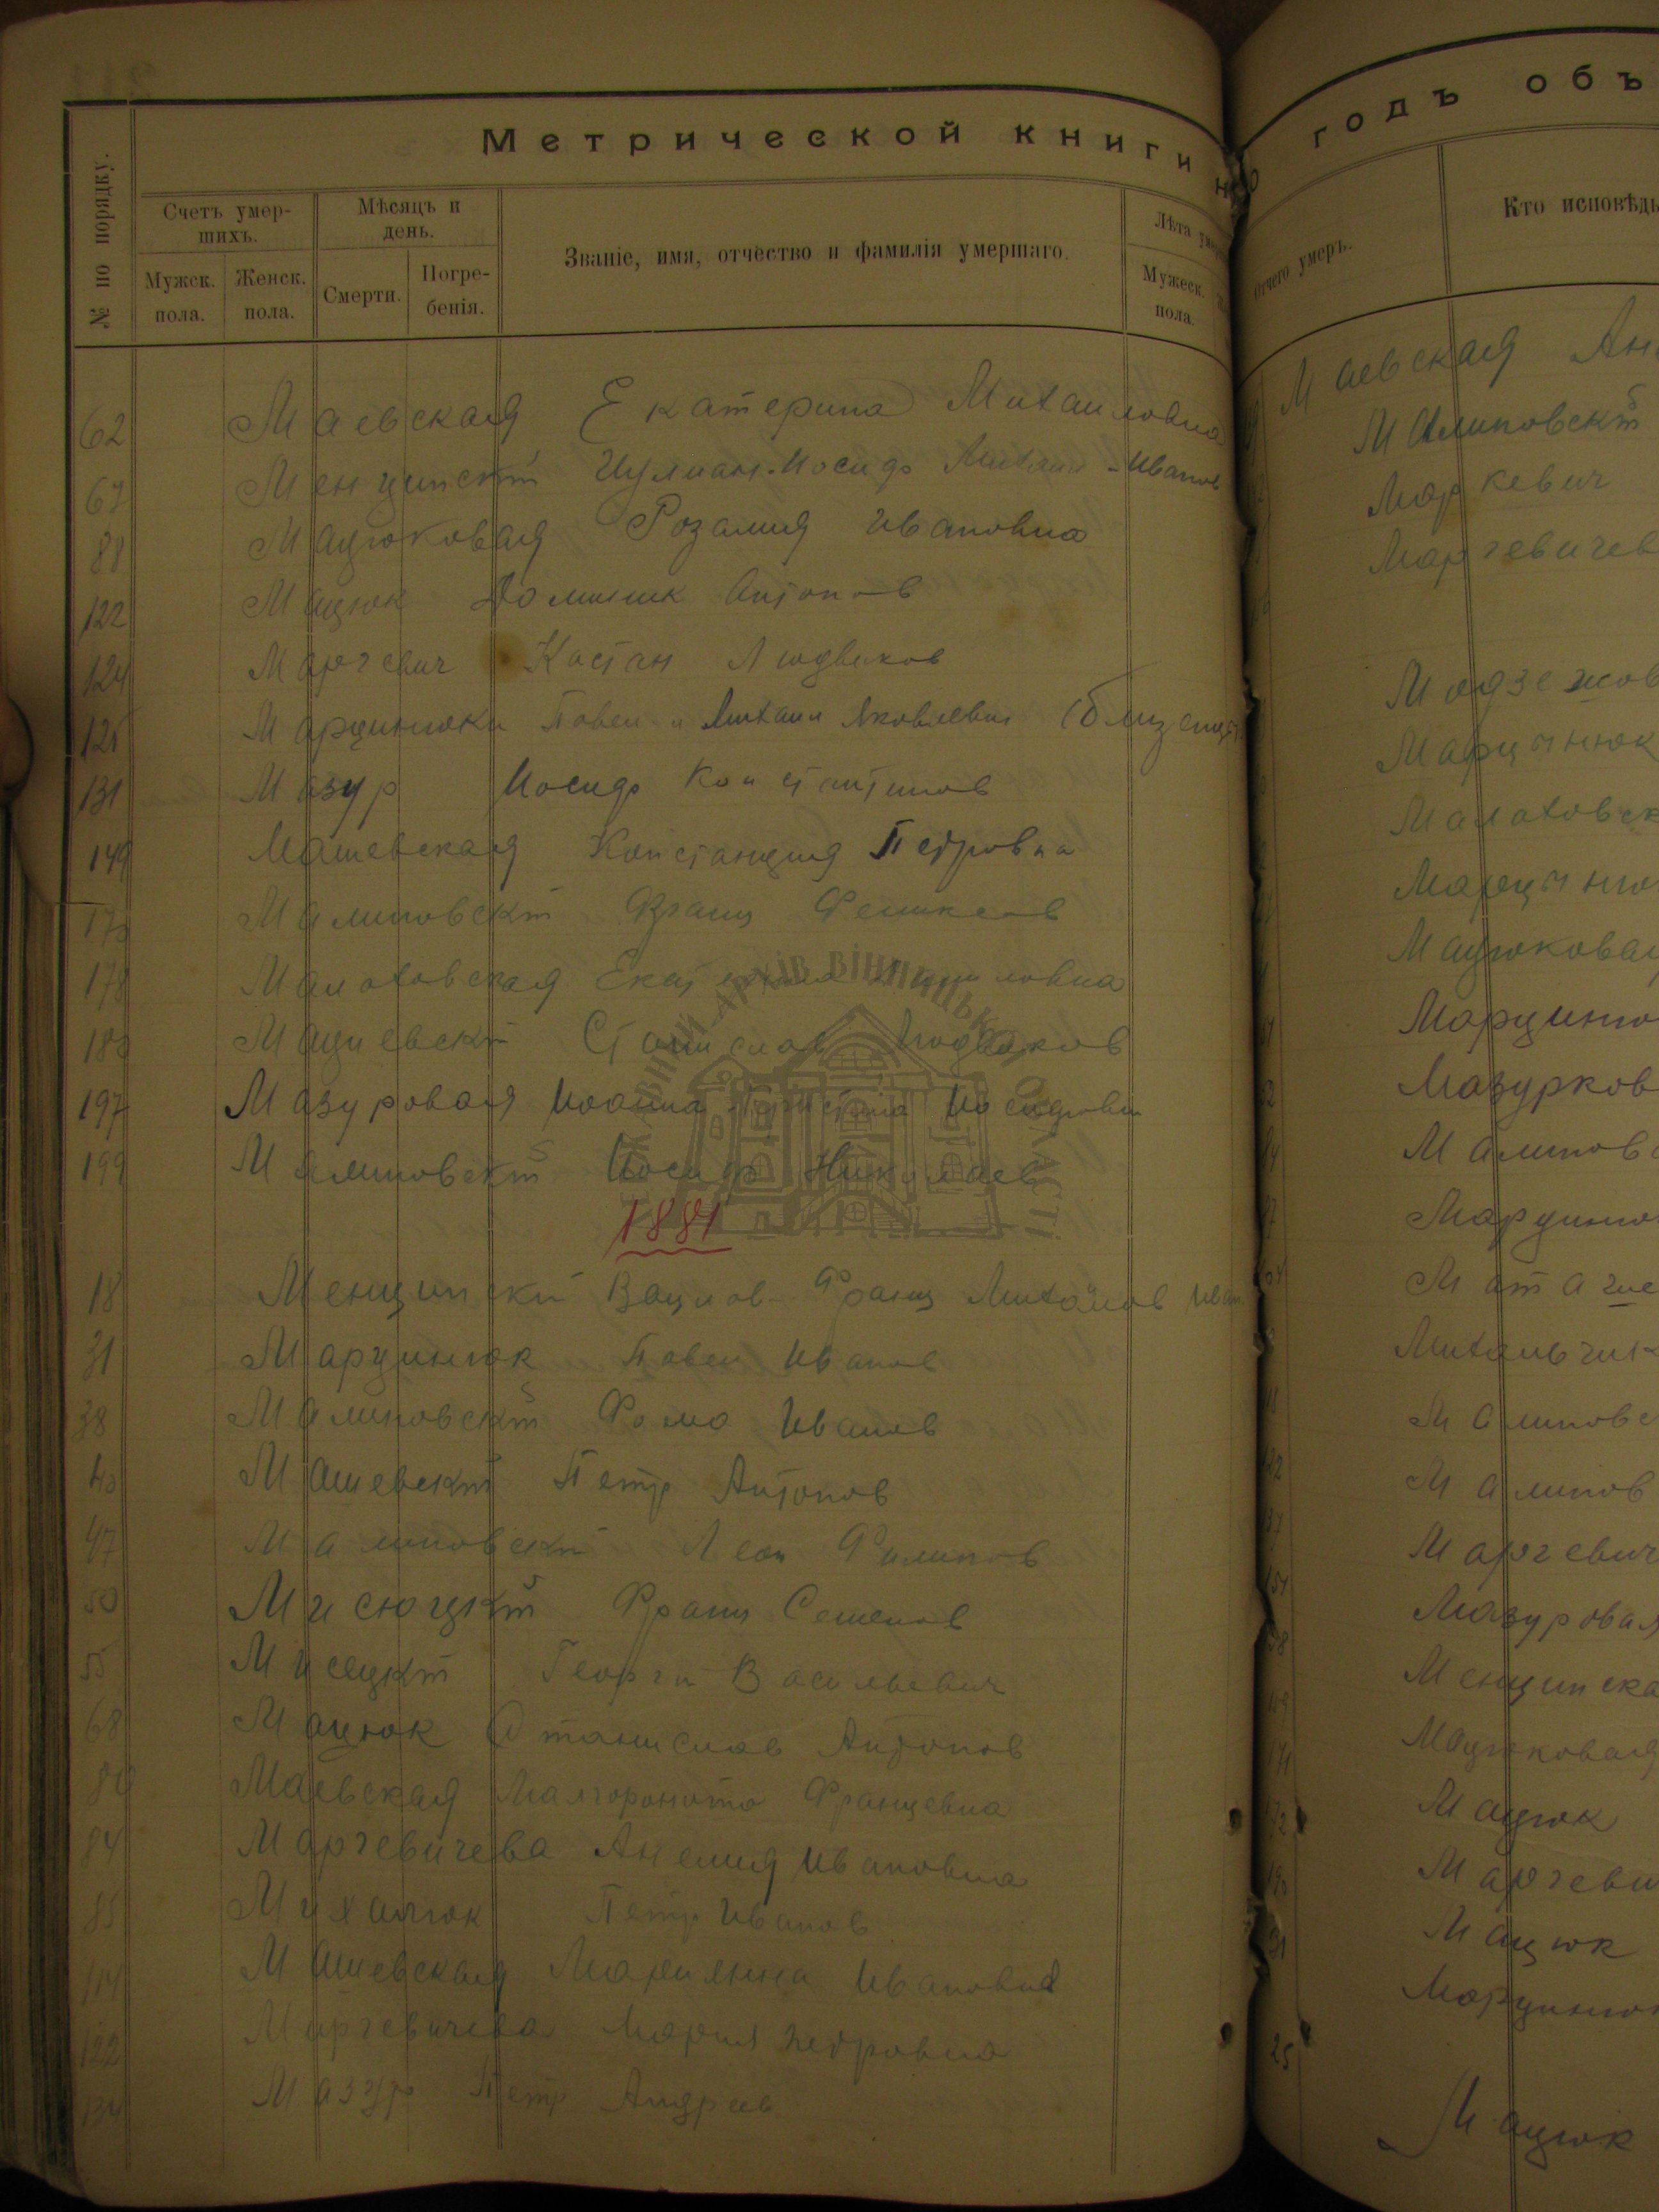 Метрической книги на
№ по порядку.
Счетъ умер-
шихъ.
Мужск.
пола.
Женск.
пола.
Мѣсяцъ и
день.
Смерти.
Погре-
бенія.
Званіе, имя, отчество и фамилія умершаго.
Лѣта
Мужеск.
пола.
62 Маевская Екатерина Михаиловна
67 Менцинскій Иулиан-Иосиф Михаил-Иванов
88 Мацюковая Розалия Ивановна
122 Мацюк Доминик Антонов
124 Маргевич Каетан Людвиков
125 Марцинюки Павел и Михаил Яковлевич (близнецы
131 Мазур Иосиф Константинов
149 Машевская Констанция Петровна
Малиновскій Франц Феликсов
178 Малаховская Екатерина
180 Мациевскій Станислав Людвиков
197 Мазуровая Иоанна Иосифовна
199 Малиновскій Иосиф Николаев
1881
18 Менцинскій Вацлав-Франц Михайлов Иван
31 Марцинюк Павел Иванов
38 Малиновскій Фома Иванов
40 Машевскій Петр Антонов
47 Малиновскій Леон Филипов
50 Мисюцкій Франц Семенов
55 Мисецкій Георги Васильевич
68 Мацюк Станислав Антонов
80 Маевская Малгоржата Францевна
84 Маргевичева Анелия Ивановна
85 Михалюк Петр Иванов
114 Машевская Марианна Ивановна
122 Маргевичева Мария Петровна
134 Мазур Петр Андреев
годъ объ
Отчего умеръ.
Кто исповѣды
Маевская Ан
Малиновскій
Маркевич
Маргевичев
Мадзежов
Марцынюк
Малаховск
Марцыню
Мацюковая
Марциню
Мазурков
Малиновс
Марциню
Михальчик
Малиновс
Малинов
Маргевич
Мазуровая
Менцинска
Мацюковая
Мацюк
Маргеви
Мацюк
Марцинюк
25 Мацюк